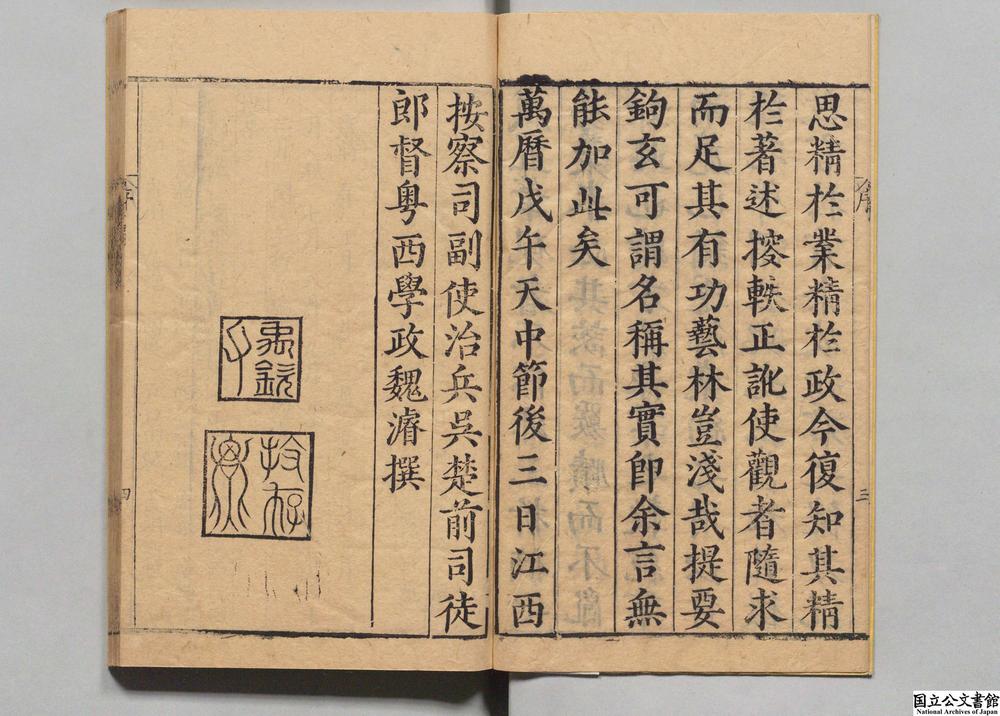 思精於業精於政今復知其精
於著述按軼正訛使觀者隨求
而足其有功藝林豈淺哉提要
鉤玄可謂名稱其實即余言無
能加此矣
萬曆戊午天中節後三日江西
按察司副使治兵吳楚前司徒
郎督粵西學政魏濬撰
三
四
国立公文書館
National Archives of Japan